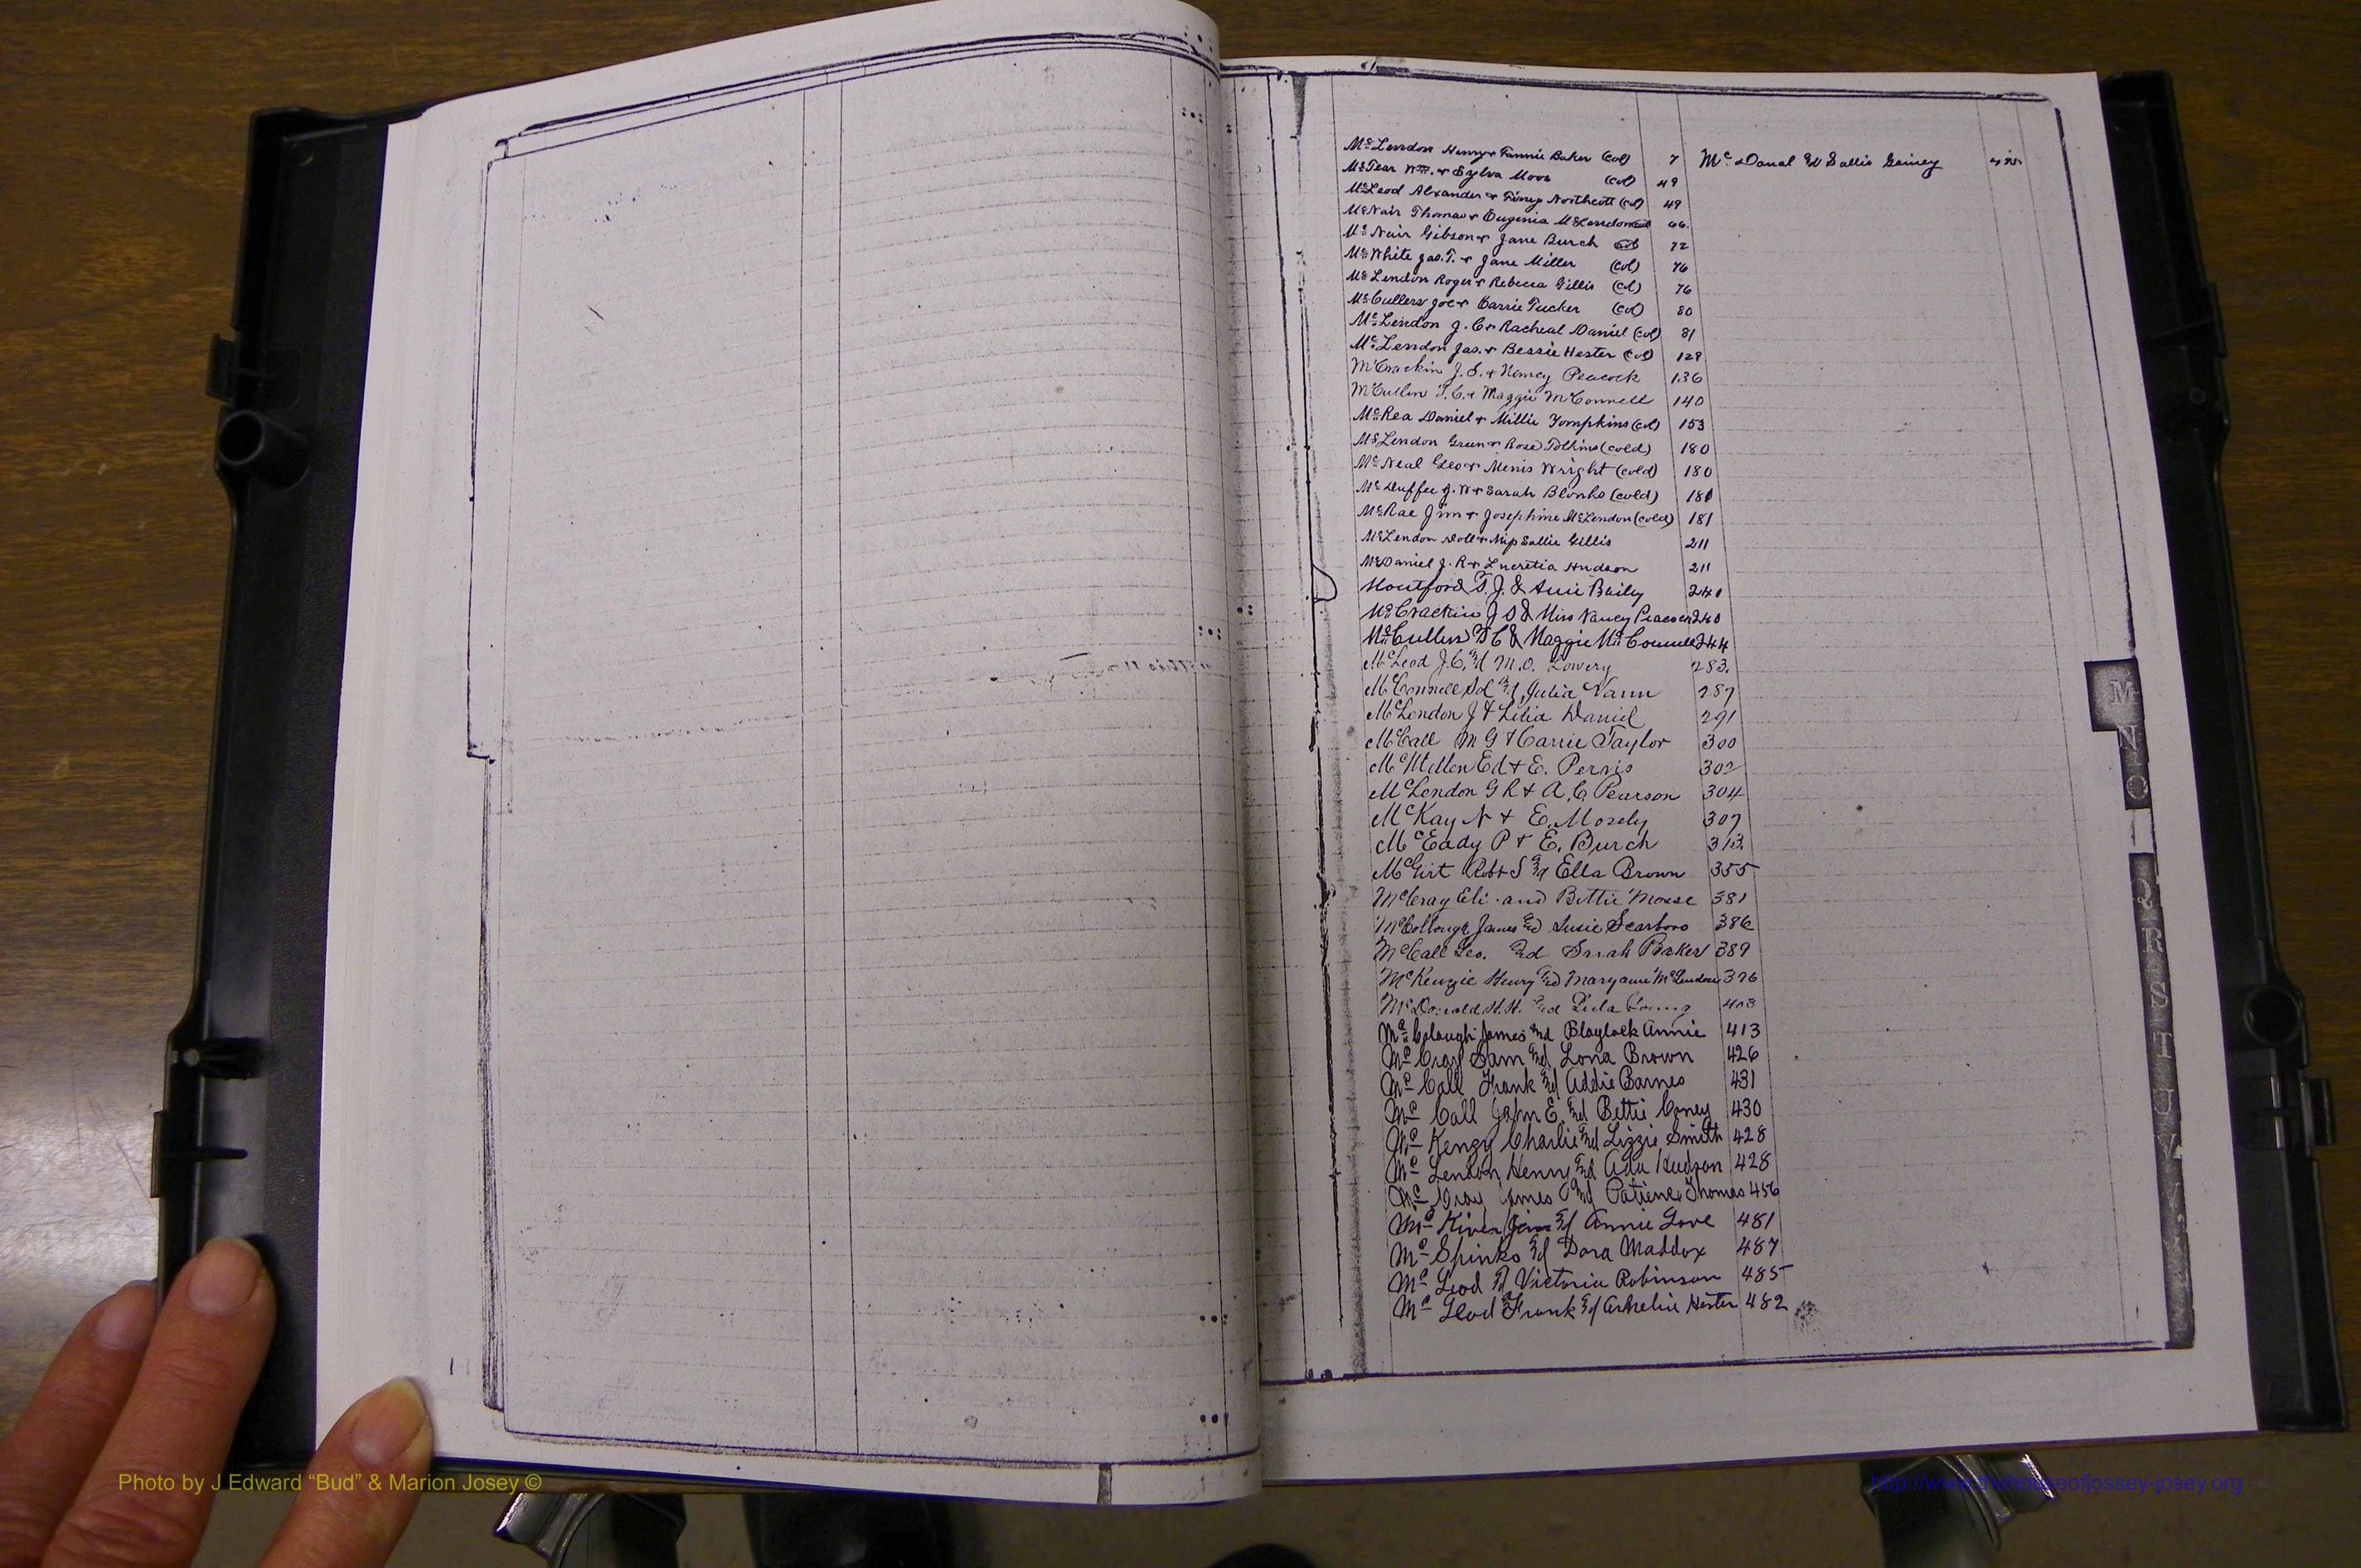 McLendon Henry & Fannie Baker (col) 7
McTear Wm. & Sylva Moor (col) 49
McLeod Alexander & Northcott (col) 49
McNair Thomas & Eugenia McLendon col 66
McNair Gibson & Jane Burch col 72
McWhite Jas. T. & Jane Miller (col) 76
McLendon Roger & Rebecca Gillis (col) 76
McCullers Joe & Carrie Tucker (col) 80
McLendon J. C. & Racheal Daniel (col) 81
McLendon Jas. & Bessie Hester (col) 128
McCrackin J. S. & Nancy Peacock 136
McCullen T. C. & Maggie McConnell 140
McRea Daniel & Millie Tompkins (col) 153
McLendon Green & Rose (cold) 180
McNeal Geo & Menis Wright (cold) 180
McDuffee J. W & Sarah (cold) 180
McRae Jim & Josephine McLendon (cold) 181
McLendon & Miss Sallie Gillis 211
McDaniel J. R & Lucretia Hudson 211
Mountford T. J. & Baily 240
McCrackin J S & Miss Nancy 240
McCullers T C & Maggie McConnell 244
McLeod J. C. and M. O. Lowery 283
McConnell and Julia Vann 287
McLendon J & Lilia Daniel 291
McCall M G & Carrie Taylor 300
McMillen Ed & E. Pervis 302
McLendon G R & A. C. Pearson 304
McKay N & E. Mosely 307
McEady P & E. Burch 313
McGirt Robt S and Ella Brown 355
McCray Eli and Bettie Moese 381
McCollough James and Susie Scarboro 386
McCall Geo. and Sarah Baker 389
McKenzie Henry and Maryann McLendon 396
McDonald H. H. and Lula Young 403
Mc Colough James and Blaylock Annie 413
Mc Cray Sam and Lona Brown 426
Mc Call Frank and Addie Barnes 431
Mc Call John E. and Bettie Coney 430
Mc Kenzy Charlie and Lizzie Smith 428
Mc Lendon Henry and Ada Hudson 428
Mc Gray James and Patience Thomas 456
Mc Kiver Jim and Annie Love 481
Mc Spinks and Dora Maddox 487
Mc Leod and Victoria Robinson 485
Mc Leod Frank and Hester 482
Mc Danal W Sallie Gainey 495
M
N
O
Q
R
S
T
U
V
Photo by J Edward “Bud” & Marion Josey ©
http://www.thehouseofjossey-josey.org